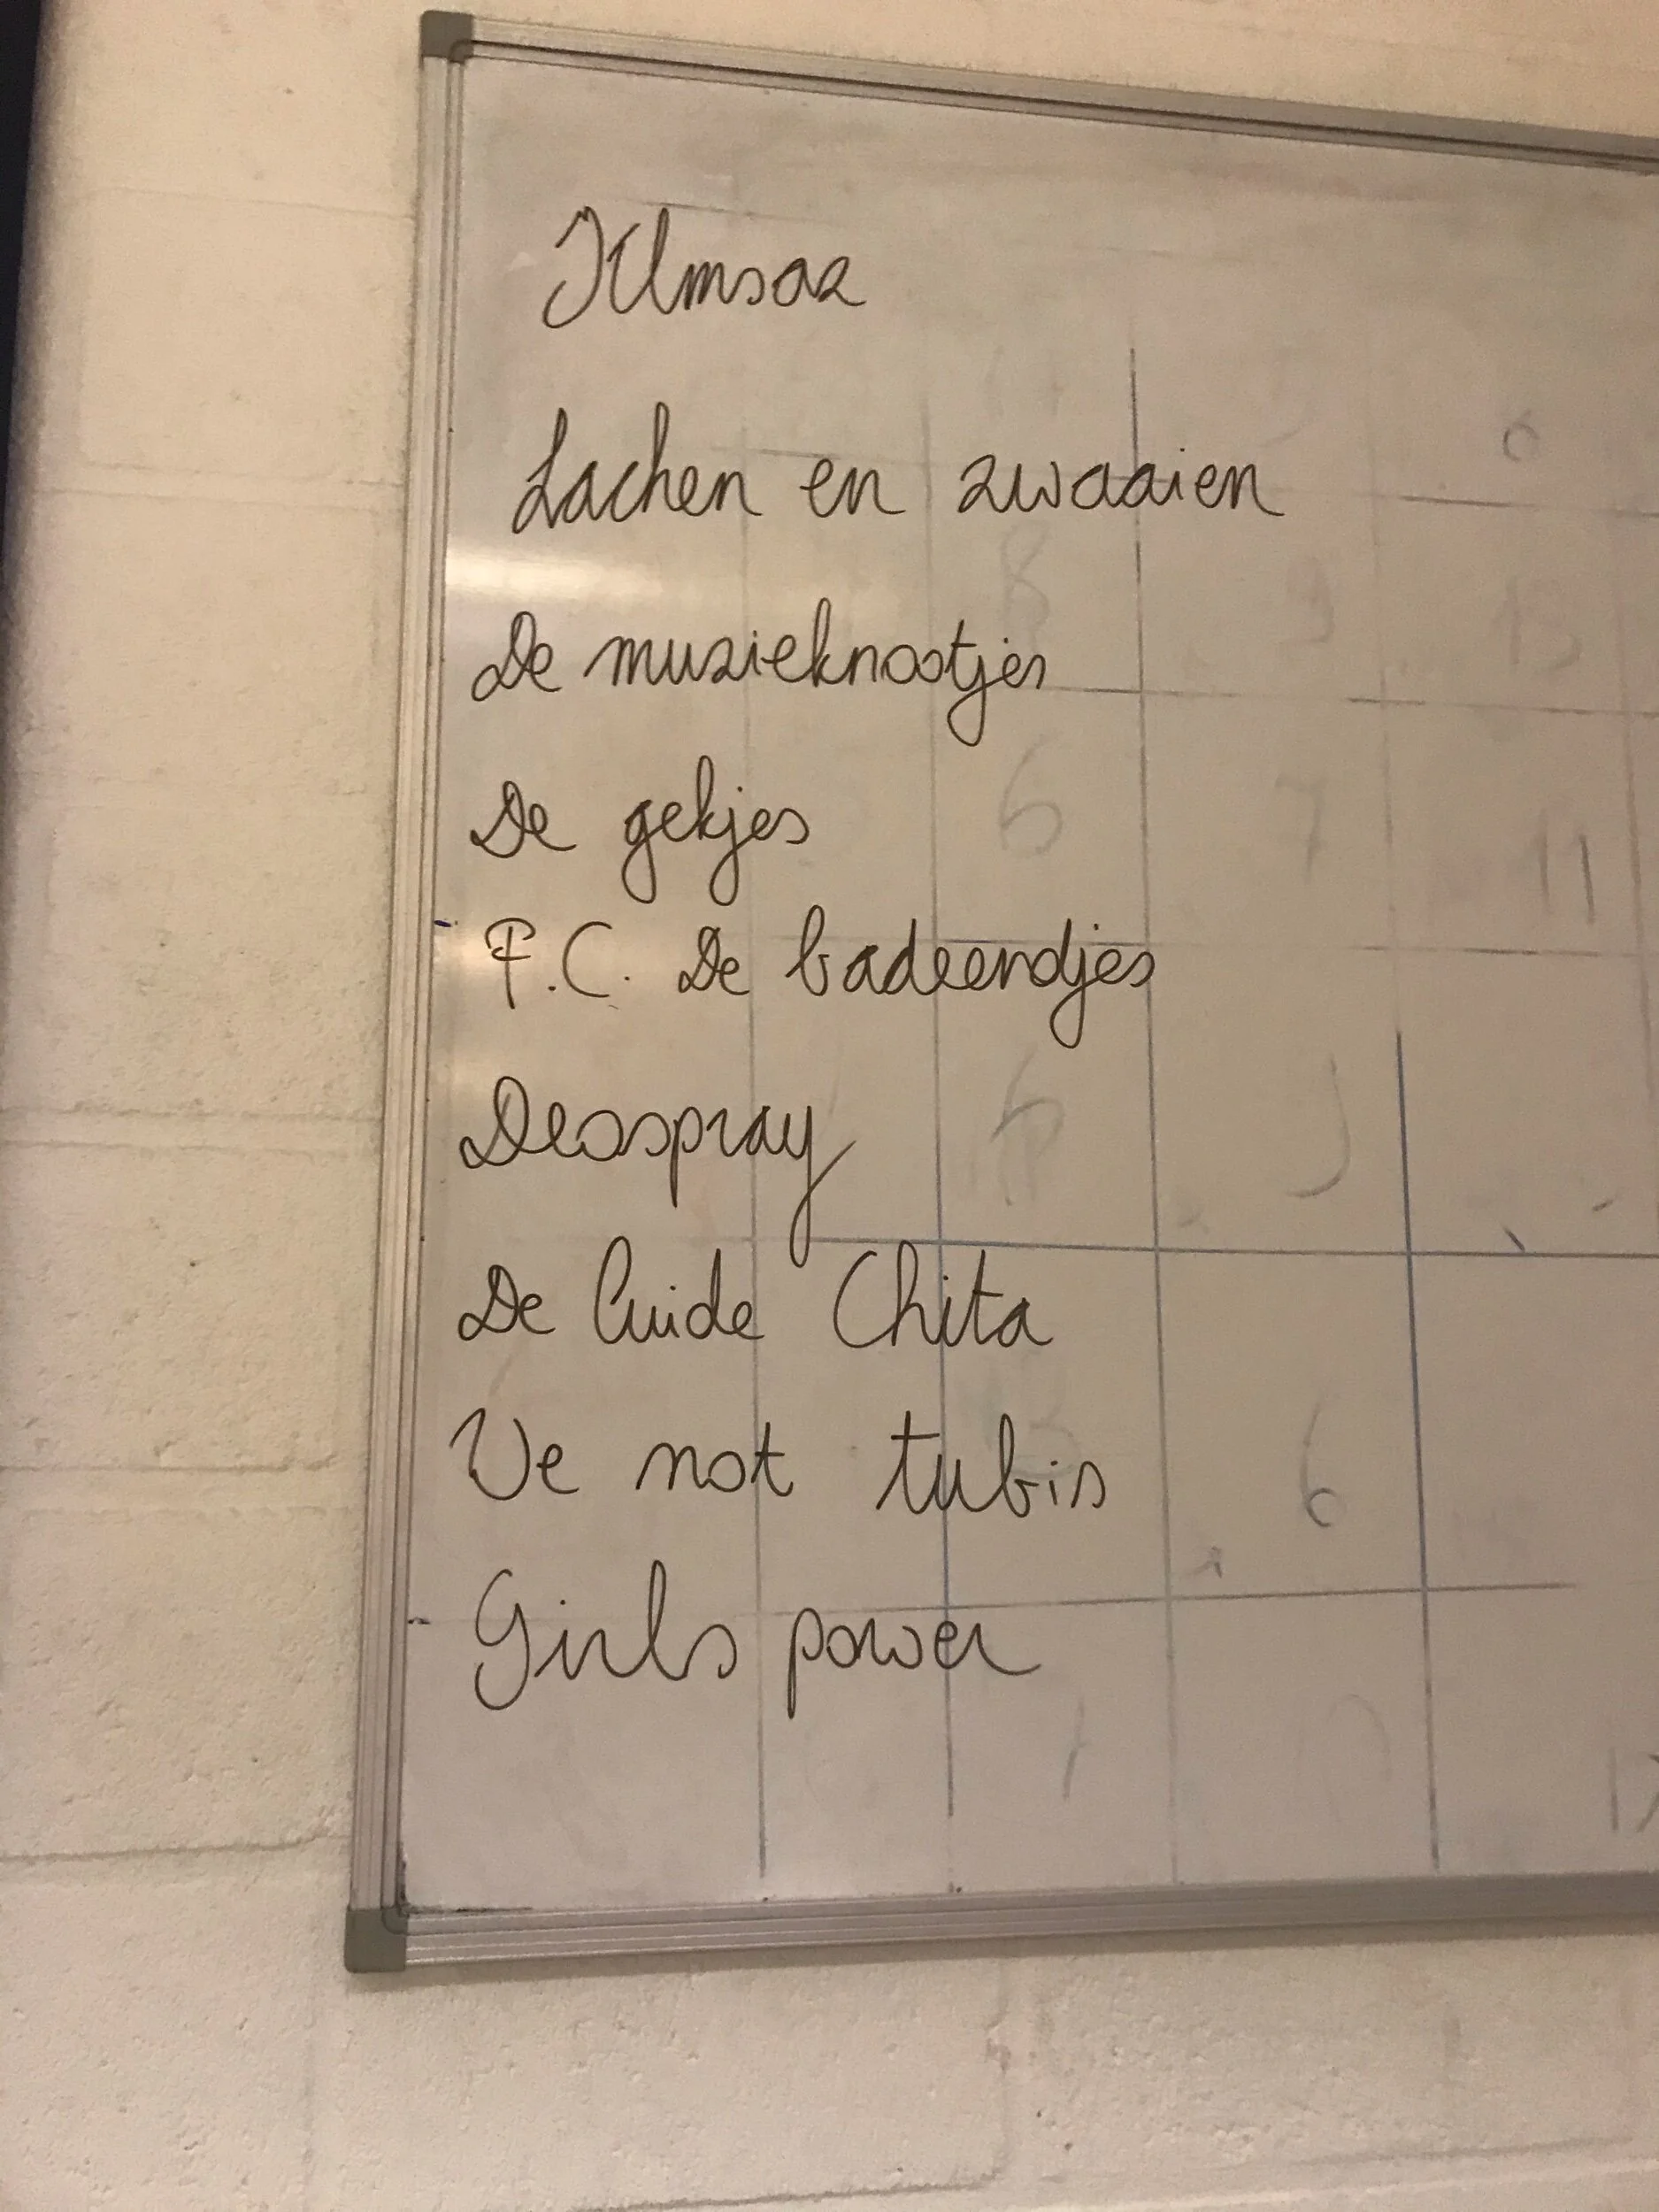 Klmsoz
Lachen en zwaaien
De muzieknootjes
De gekjes
F.C. De badeendjes
Deospray
De Cuide Chita
Ve not tubis
Girls power